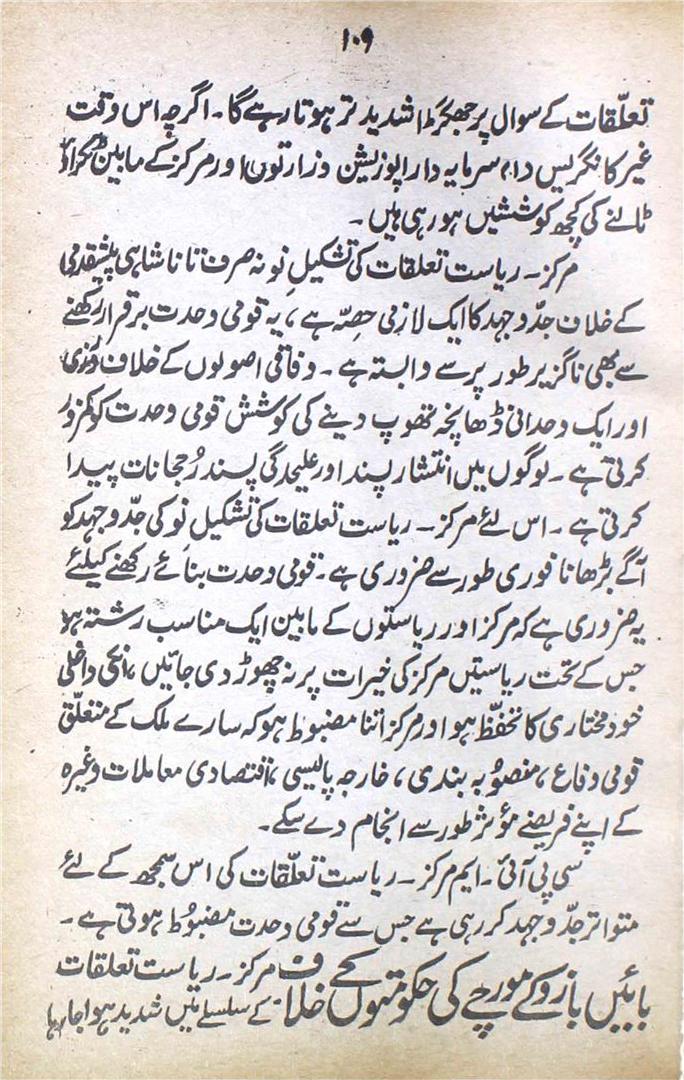 ۱۰۹
تعلّقات کے سوال پر جھگڑا شدید تر ہوتا رہے گا۔ اگرچہ اس وقت
غیر کانگریس دا، سرمایہ دار اپوزیشن وزارتوں اور مرکز کے مابین ٹکراؤ
ٹالنے کی کچھ کوششیں ہو رہی ہیں۔
مرکز۔ ریاست تعلقات کی تشکیلِ نو نہ صرف تانا شاہی پیشقدمی
کے خلاف جدّوجہد کا ایک لازمی حصّہ ہے، یہ قومی وحدت برقرار رکھنے
سے بھی ناگزیر طور پر سے وابستہ ہے۔ وفاقی اصولوں کے خلاف ورزی
اور ایک وحدانی ڈھانچہ تھوپ دینے کی کوشش قومی وحدت کو کمزور
کرتی ہے۔ لوگوں میں انتشار پسند اور علیحدگی پسند رُجحانات پیدا
کرتی ہے۔ اس لئے مرکز۔ ریاست تعلقات کی تشکیل نو کی جدّوجہد کو
آگے بڑھانا فوری طور سے ضروری ہے۔ قومی وحدت بنائے رکھنے کیلئے
یہ ضروری ہے کہ مرکز اور ریاستوں کے مابین ایک مناسب رشتہ ہو
جس کے تحت ریاستیں مرکز کی خیرات پر نہ چھوڑ دی جائیں، انکی داخلی
خود مختاری کا تحفّظ ہو اور مرکز اتنا مضبوط ہو کہ سارے ملک کے متعلّق
قومی دفاع، منصوُبہ بندی، خارجہ پالیسی، اقتصادی معاملات وغیرہ
کے اپنے فریضے مؤثر طور سے انجام دے سکے۔
سی پی آئی۔ ایم مرکز۔ ریاست تعلّقات کی اس سمجھ کے لئے
متواتر جدّوجہد کر رہی ہے جس سے قومی وحدت مضبوُط ہوتی ہے۔
بائیں بازو کے مورچے کی حکومتوں کے خلاف مرکز۔ ریاست تعلقات
کے سلسلے میں شدید ہوا جا رہا